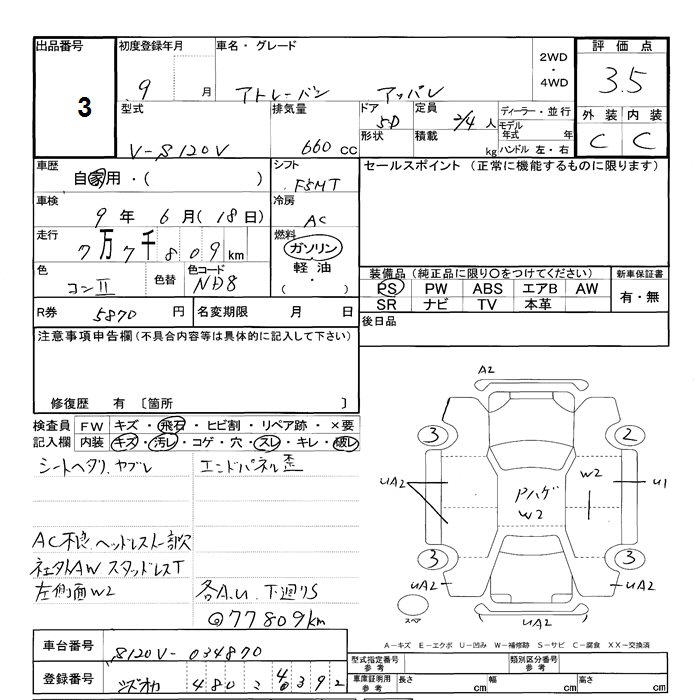 出品番号 3
初度登録年月 9 月
車名・グレード アトレーバン アッパレ
2WD・4WD
評価点 3.5
型式 V-S120V
排気量 660 cc
ドア 5D 形状
定員 2/4 人 積載 kg
ディーラー・並行
モデル年式 年
ハンドル 左・右
外装 内装
C C
車歴 自家用・( )
シフト F5MT
セールスポイント (正常に機能するものに限ります)
車検 9 年 6 月 (18日)
冷房 AC
走行 7万7千809km
燃料 ガソリン
軽油
( ・ )
色 コンII 色替 色コード ND8
装備品 (純正品に限り○をつけてください) 新車保証書
PS PW ABS エアB AW 有・無
SR ナビ TV 本革
R券 5870 円 名変期限 月 日
後日品
注意事項申告欄(不具合内容等は具体的に記入して下さい)
修復歴 有 〔箇所 〕
検査員 FW キズ・飛石・ヒビ割・リペア跡・×要
記入欄 内装 キズ・汚レ・コゲ・穴・スレ・キレ・破レ
シートヘタリ、ヤブレ エンドパネル歪
AC不良、ヘッドレスト一部欠
社外AW スタッドレスT
左側面W2 各A.U. 下廻りS
@77809km
A2
3 2
UA2 PハゲW2 W2 U1
3 3
UA2 UA2
スペア UA2
A-キズ E-エクボ U-凹み W-補修跡 S-サビ C-腐食 XX-交換済
車台番号 S120V-034870
型式指定番号 参考 類別区分番号 参考
登録番号 シズオカ 480 ニ 4039２
車庫証明用 参考 長さ cm 幅 cm 高さ cm